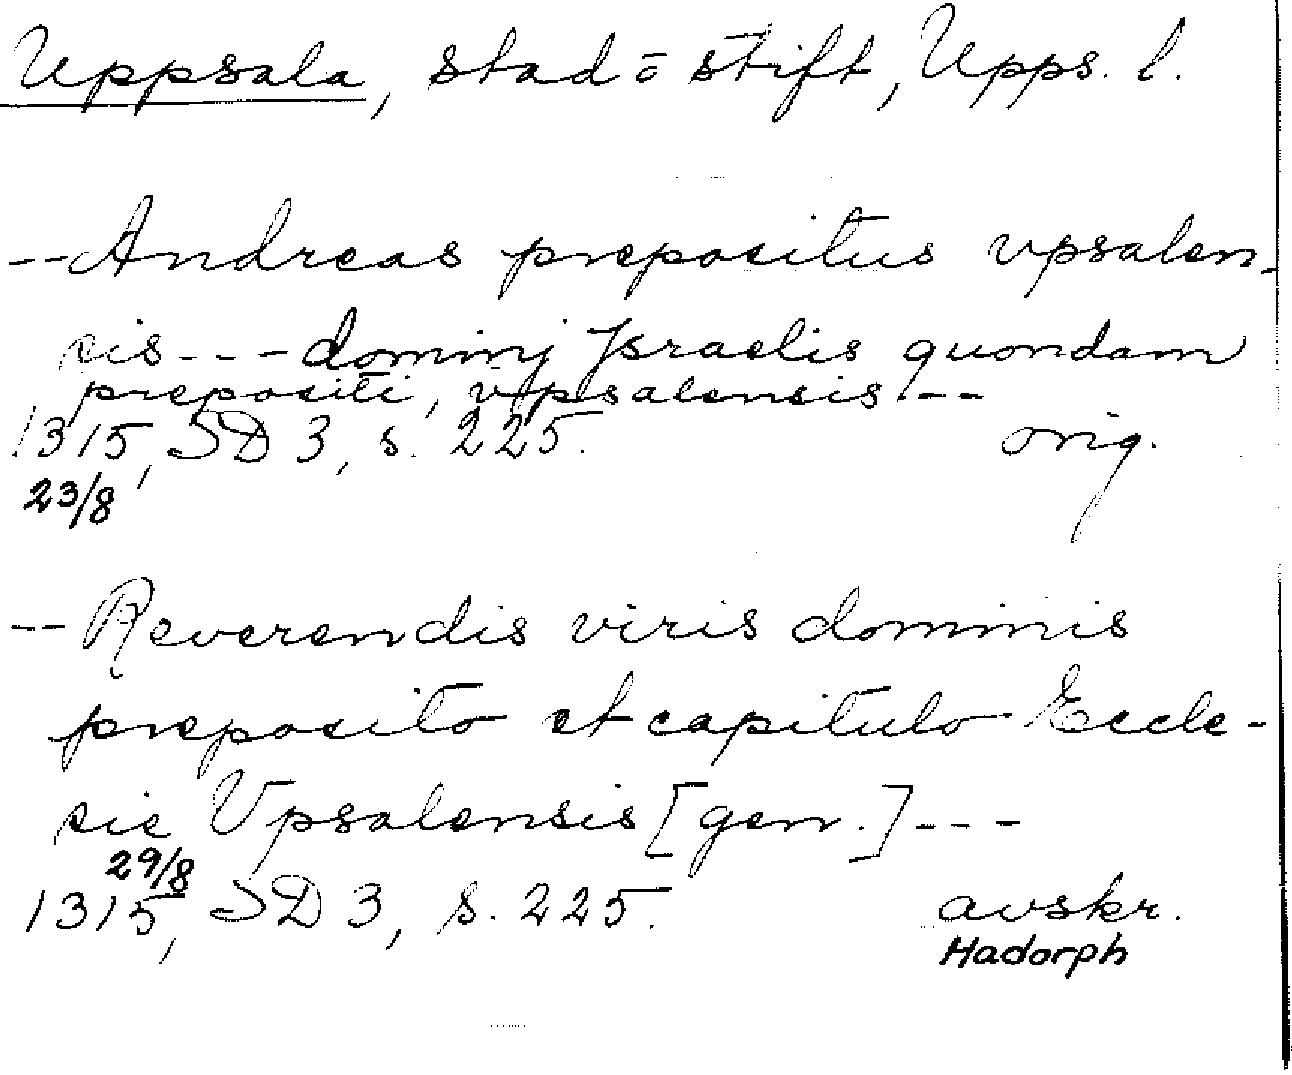 Uppsala, stad o stift, Upps. l.
-- Andreas prepositus vpsalen-
sis --- dominj Jsraelis quondam
prepositi, vpsalensis --
1315, SD 3, s. 225. orig.
23/8
-- Reverendis viris dominis
preposito et capitulo Eccle-
sie Vpsalensis [gen.] ---
29/8
1315, SD 3, s. 225. avskr.
Hadorph